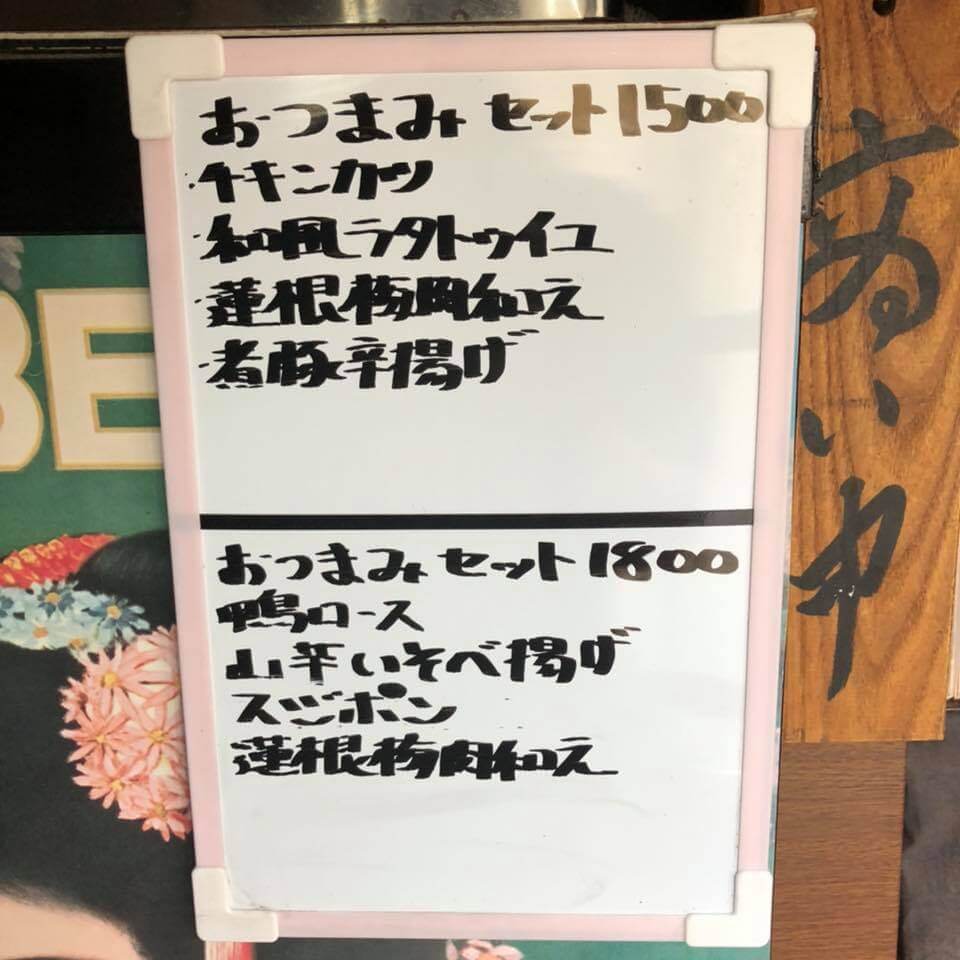 おつまみセット1500
・チキンカツ
・和風ラタトゥイユ
・蓮根梅肉和え
・煮豚辛揚げ
おつまみセット1800
鴨ロース
山芋いそべ揚げ
スジポン
蓮根梅肉和え
BE
商い中